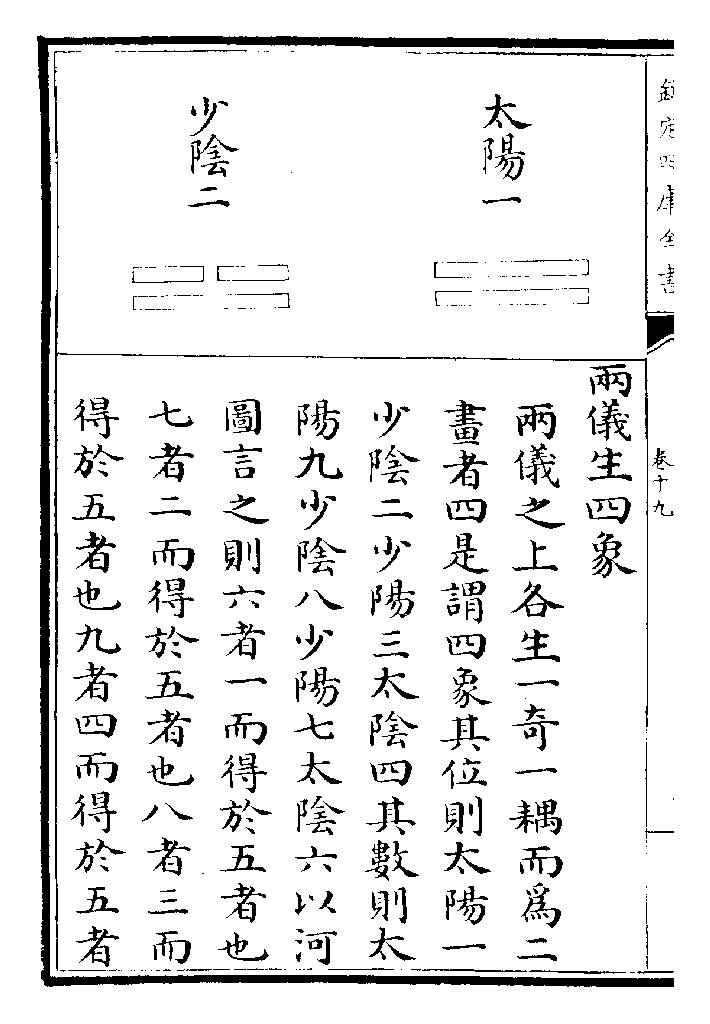 欽定四庫全書
卷十九
太陽一
少陰二
兩儀生四象
兩儀之上各生一奇一耦而爲二
畫者四是謂四象其位則太陽一
少陰二少陽三太陰四其數則太
陽九少陰八少陽七太陰六以河
圖言之則六者一而得於五者也
七者二而得於五者也八者三而
得於五者也九者四而得於五者